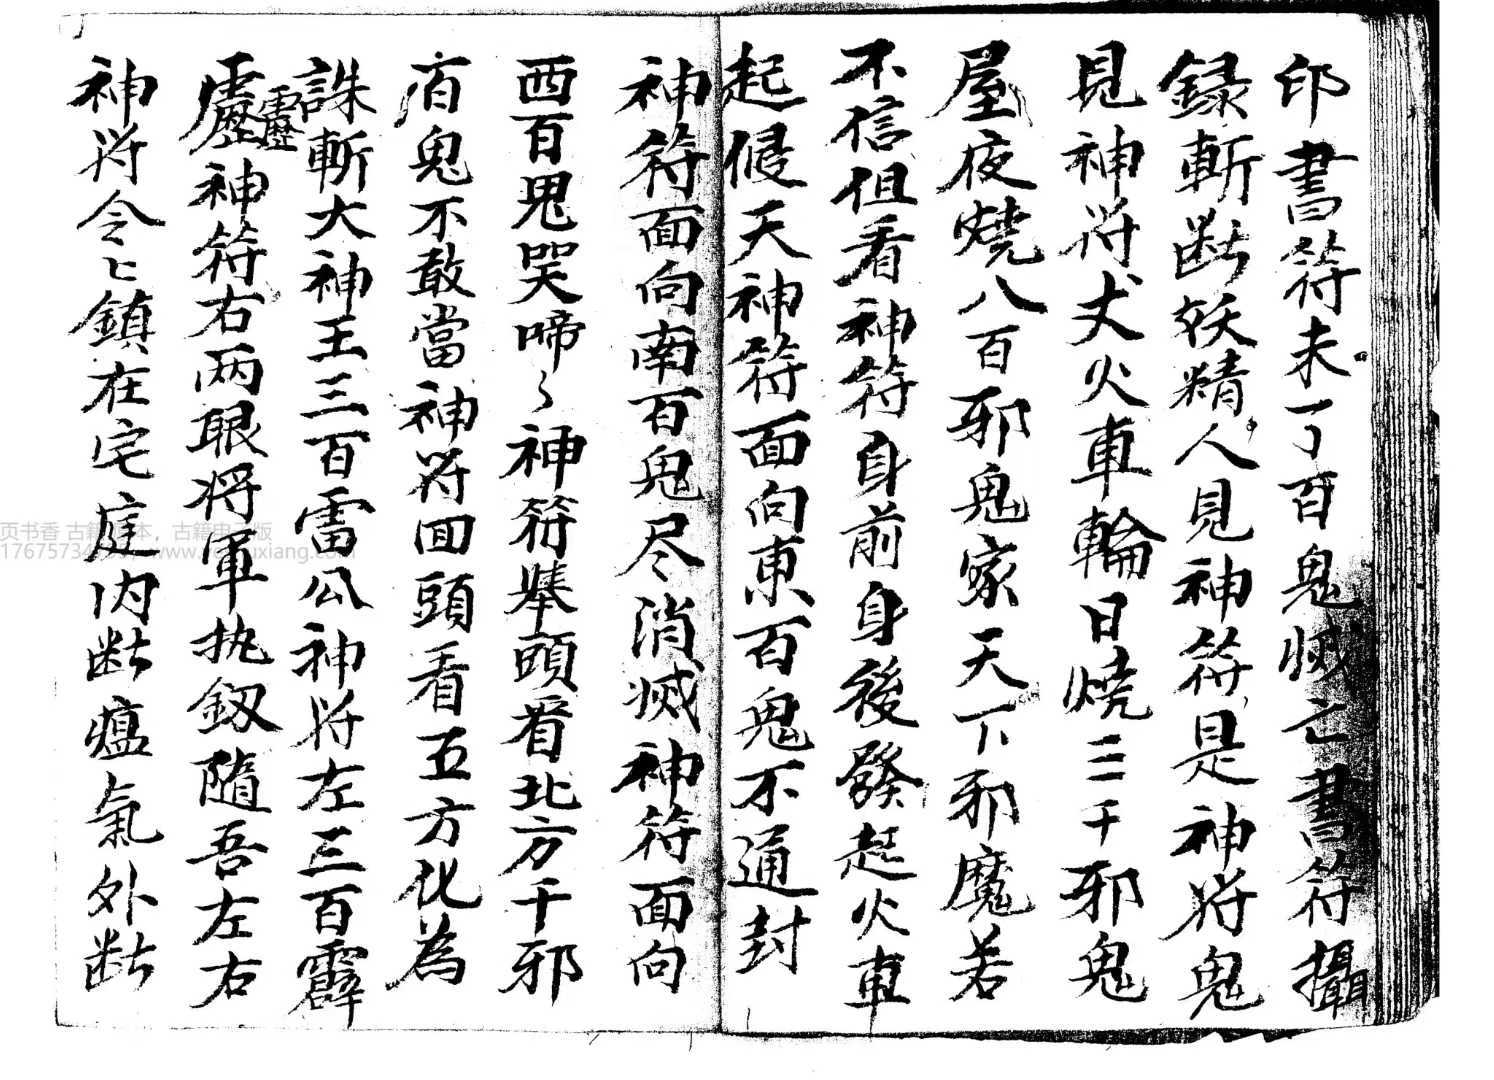 印書符未了百鬼滅亡書符攝
録斬斷妖精人見神符是神將鬼
見神將丈火車輪日燒三千邪鬼
屋夜燒八百邪鬼家天下邪魔若
不信但看神符身前身後發起火車
起侵天神符面向東百鬼不通封
神符面向南百鬼尽消滅神符面向
西百鬼哭啼〻神符舉頭看北方千邪
百鬼不敢當神將回頭看五方化為
誅斬大神王三百雷公神將左三百霹
靂神符右两眼将軍执釼隨吾左右
靂
神將令〻鎮在宅庭内断瘟氣外断